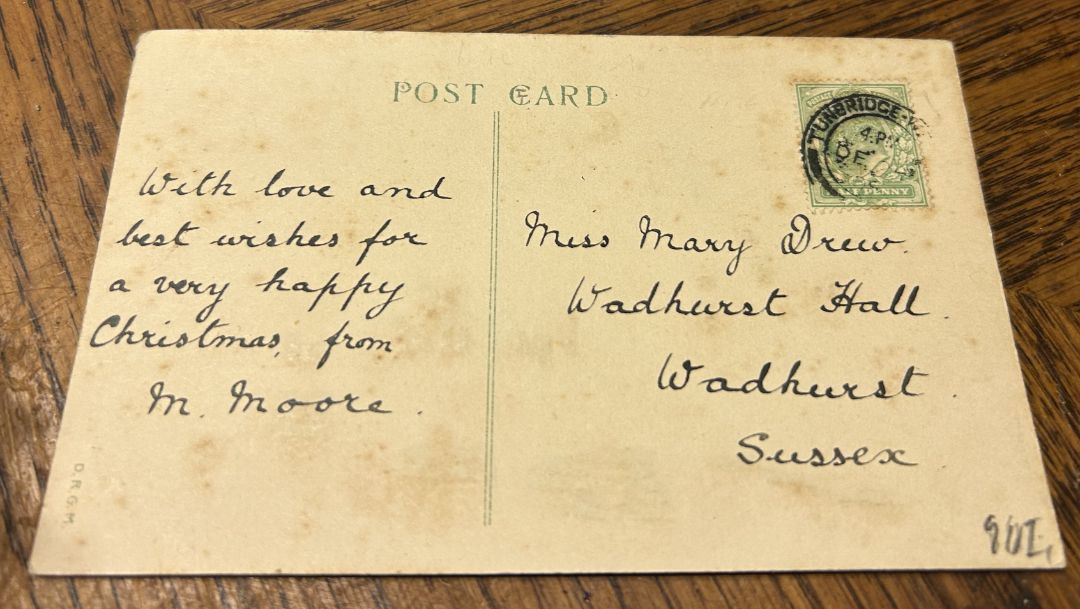 POST CARD
TUNBRIDGE
4.PM
DE
HALF PENNY
With love and
best wishes for
a very happy
Christmas, from
M. Moore.
Miss Mary Drew.
Wadhurst Hall.
Wadhurst.
Sussex
D.R.G.M